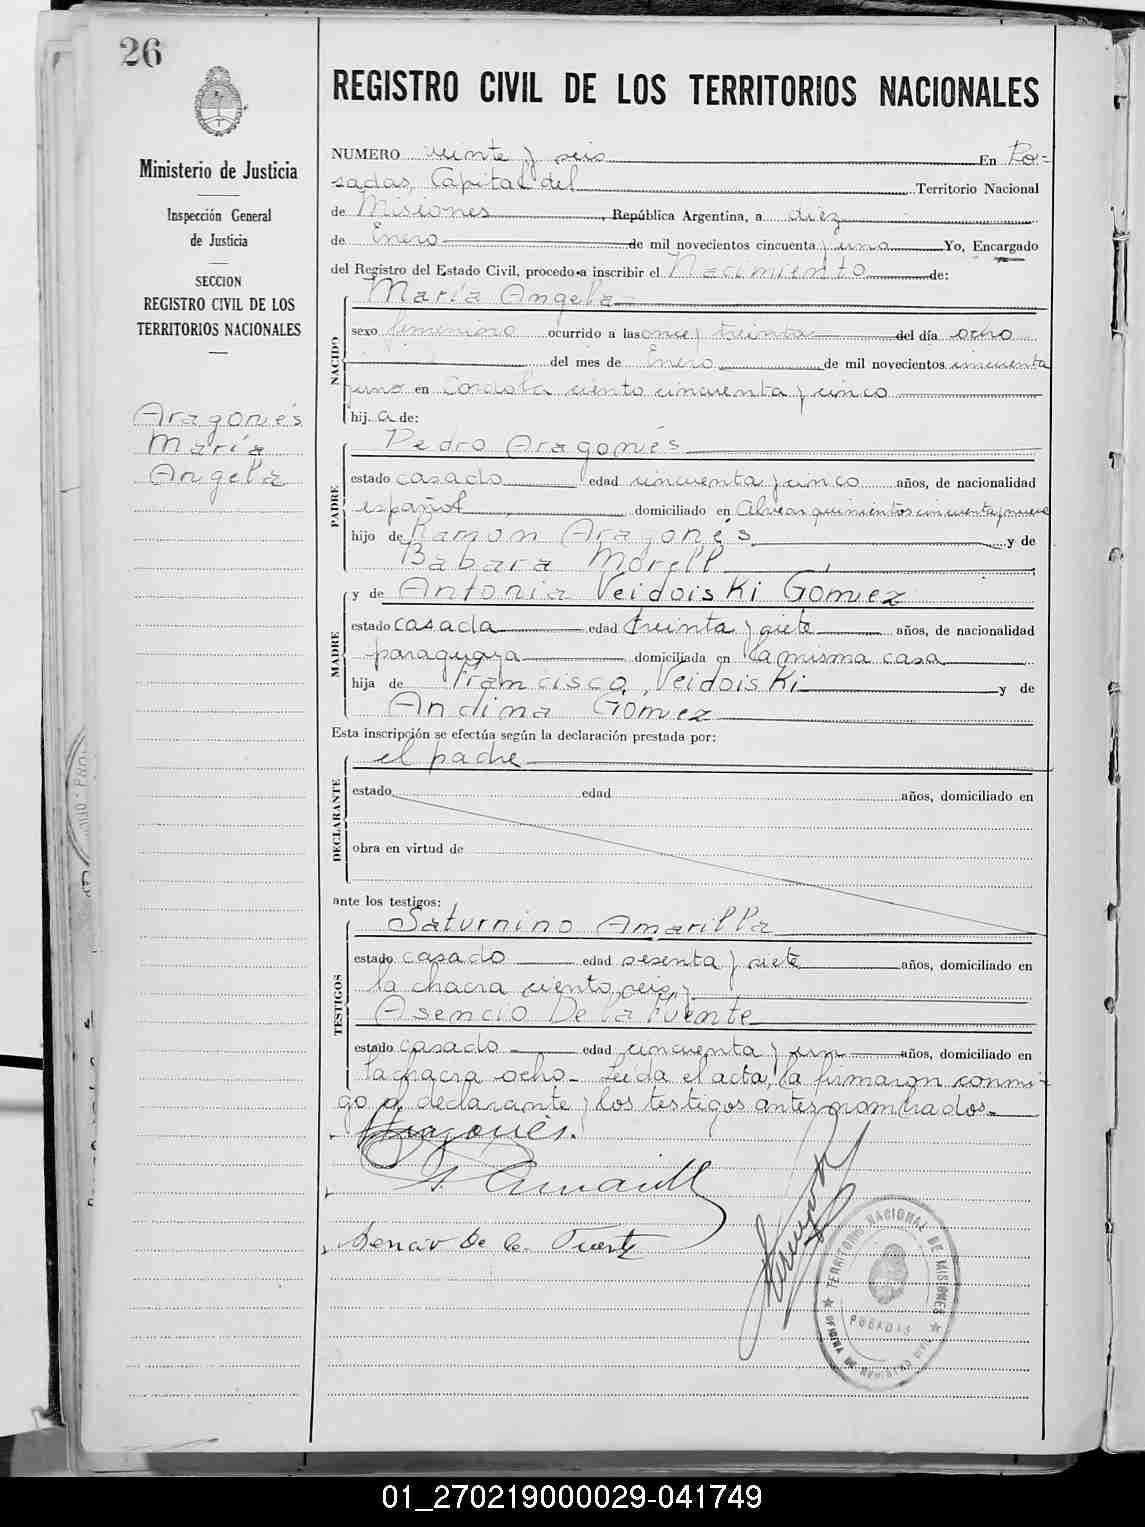 26
REGISTRO CIVIL DE LOS TERRITORIOS NACIONALES
Ministerio de Justicia
Inspección General
de Justicia
SECCION
REGISTRO CIVIL DE LOS
TERRITORIOS NACIONALES
Aragonés
María
Angela
NUMERO veinte y seis En Po-
sadas, Capital del Territorio Nacional
de Misiones, República Argentina, a diez
de Enero de mil novecientos cincuenta y uno Yo, Encargado
del Registro del Estado Civil, procedo a inscribir el Nacimiento de:
NACIDO
María Angela
sexo femenino ocurrido a las once y treinta del día ocho
del mes de Enero de mil novecientos cincuenta
y uno en Cordoba ciento cincuenta y cinco
hij a de:
PADRE
Pedro Aragonés
estado casado edad cincuenta y cinco años, de nacionalidad
español domiciliado en Alvear quinientos cincuenta y nueve
hijo de Ramon Aragonés y de
Babara Morell
MADRE
y de Antonia Veidoiski Gómez
estado casada edad treinta y siete años, de nacionalidad
paraguaya domiciliada en la misma casa
hija de Francisco Veidoiski y de
Andina Gómez
Esta inscripción se efectúa según la declaración prestada por:
DECLARANTE
el padre
estado edad años, domiciliado en
obra en virtud de
ante los testigos:
TESTIGOS
Saturnino Amarilla
estado casado edad sesenta y siete años, domiciliado en
la chacra ciento seis y
Asencio De la Fuente
estado casado edad cincuenta y un años, domiciliado en
la chacra ocho- Leida el acta, la firmaron conmi-
go el declarante y los testigos antes nombrados-
Aragonés.
S. Amarilla
Asencio De la Fuente
TERRITORIO NACIONAL DE MISIONES
POSADAS
OFICINA DE REGISTRO CIVIL
01_270219000029-041749